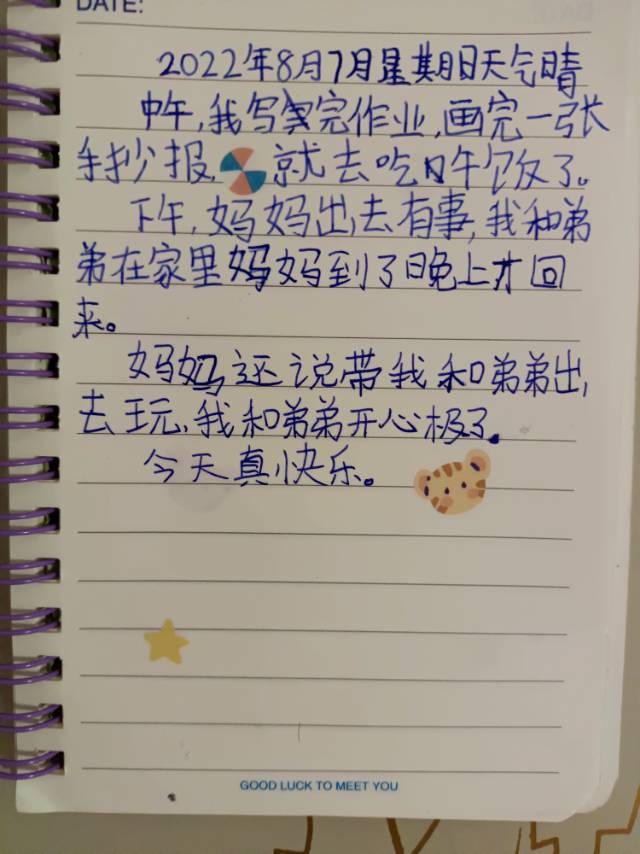 DATE:
2022年8月7月星期日天气晴
中午,我写完作业,画完一张
手抄报,就去吃午饭了。
下午,妈妈出去有事,我和弟
弟在家里妈妈到了晚上才回
来。
妈妈还说带我和弟弟出
去玩,我和弟弟开心极了.
今天真快乐。
GOOD LUCK TO MEET YOU